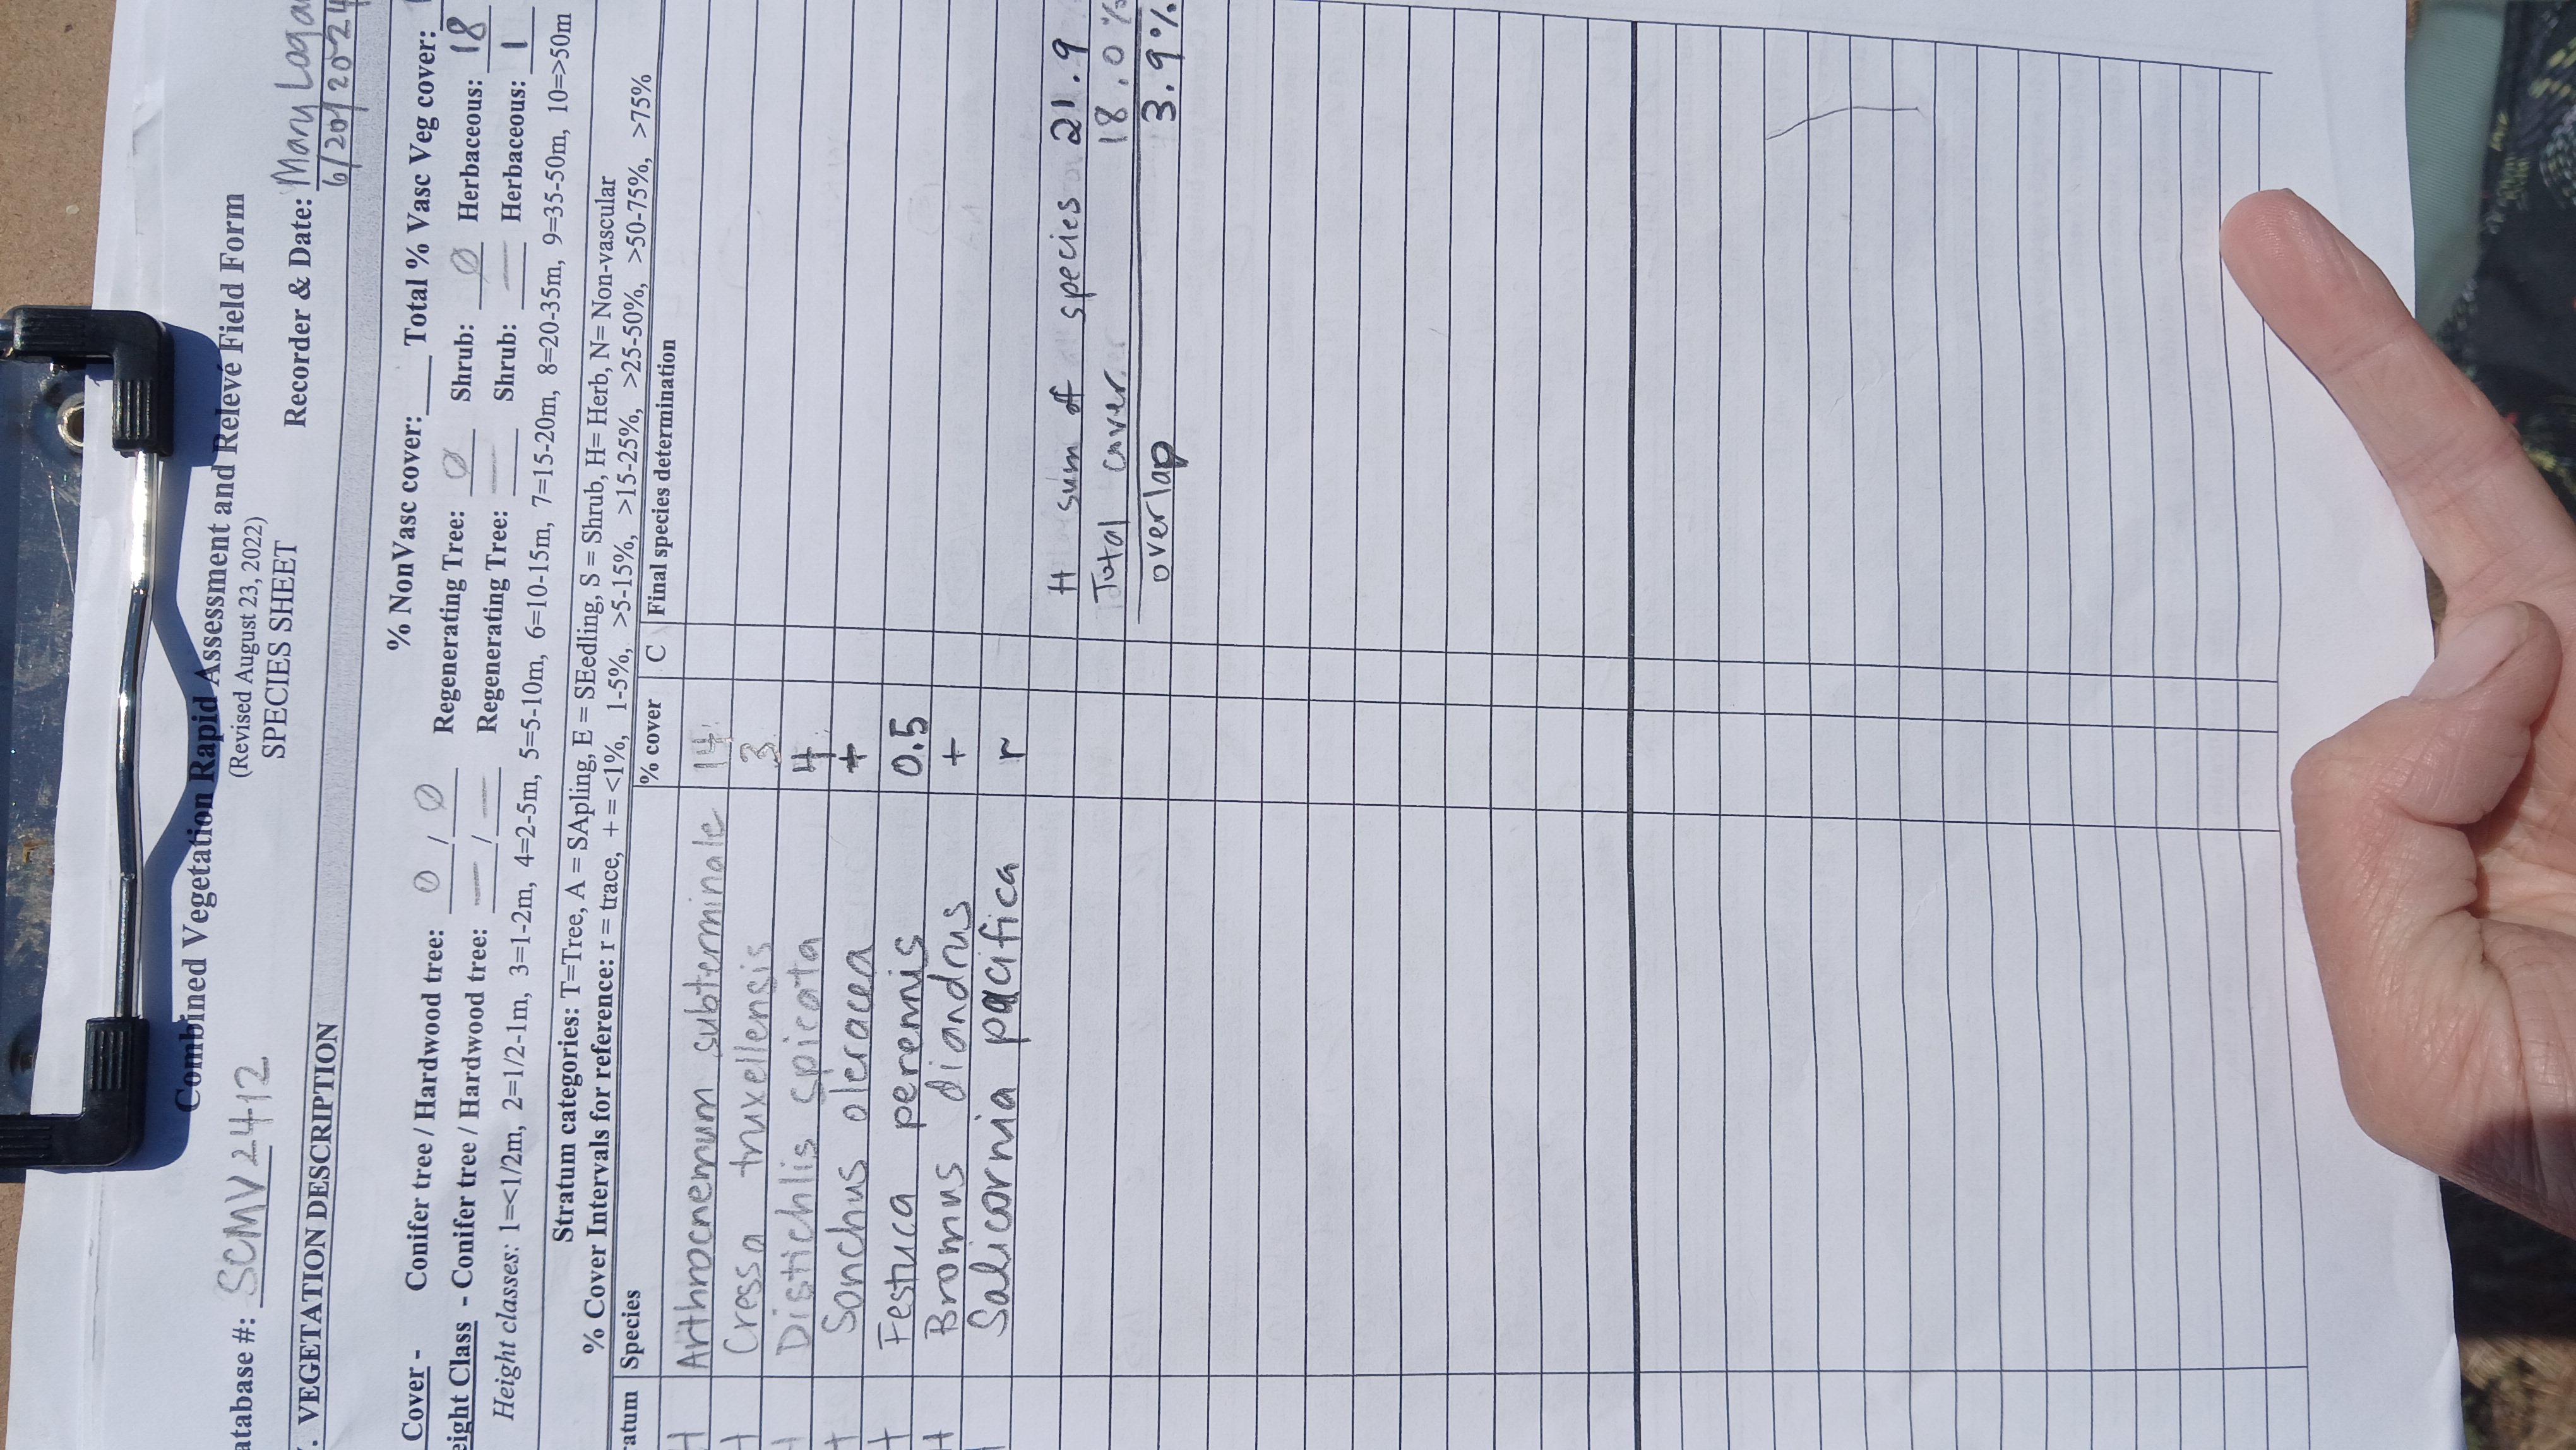 Combined Vegetation Rapid Assessment and Relevé Field Form
(Revised August 23, 2022)
SPECIES SHEET
atabase #: SCMV2412 Recorder & Date: Mary Loga
6/20/2024
. VEGETATION DESCRIPTION
% NonVasc cover: ___ Total % Vasc Veg cover:
Cover - Conifer tree / Hardwood tree: 0 / Ø Regenerating Tree: Ø Shrub: Ø Herbaceous: 18
eight Class - Conifer tree / Hardwood tree: — / — Regenerating Tree: — Shrub: — Herbaceous: 1
Height classes: 1=<1/2m, 2=1/2-1m, 3=1-2m, 4=2-5m, 5=5-10m, 6=10-15m, 7=15-20m, 8=20-35m, 9=35-50m, 10=>50m
Stratum categories: T=Tree, A = SApling, E = SEedling, S = Shrub, H= Herb, N= Non-vascular
% Cover Intervals for reference: r = trace, + = <1%, 1-5%, >5-15%, >15-25%, >25-50%, >50-75%, >75%
ratum Species % cover C Final species determination
H Arthrocnemum subterminale 14
H Cressa truxellensis 3
H Distichlis spicata 4
H Sonchus oleracea +
H Festuca perennis 0.5
H Bromus diandrus +
Salicornia pacifica r
H sum of species 21.9
Total cover 18.0%
overlap 3.9%